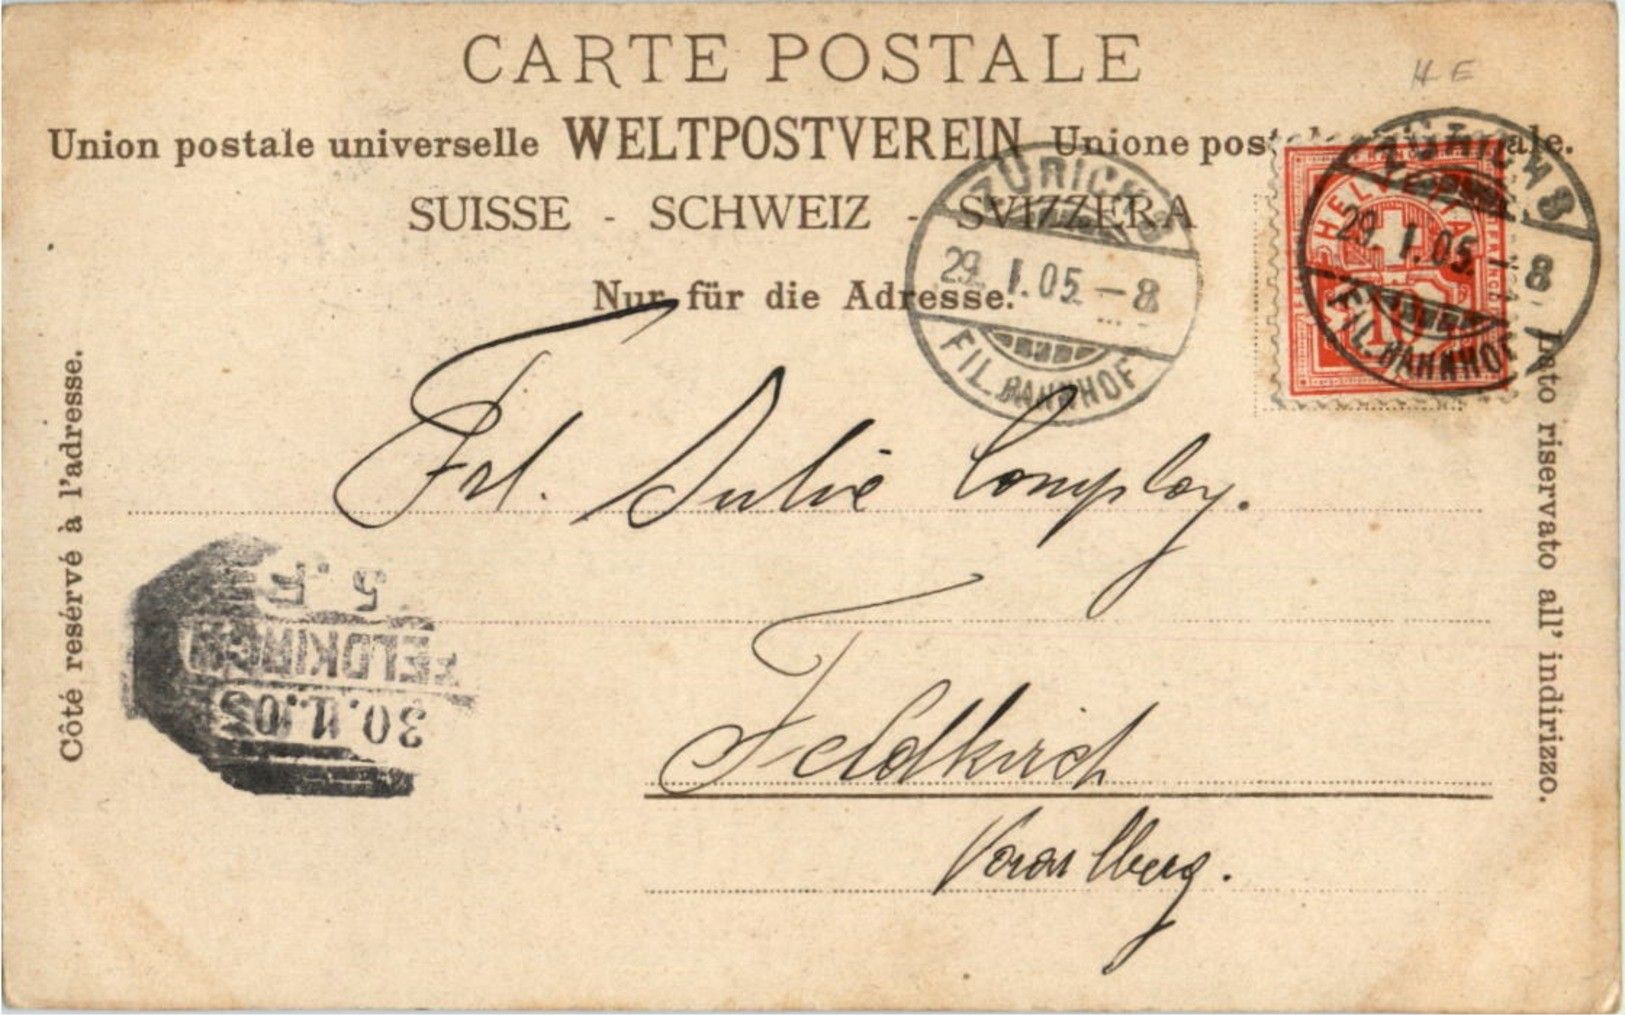 CARTE POSTALE
H E
Union postale universelle WELTPOSTVEREIN Unione postale.
SUISSE - SCHWEIZ - SVIZZERA
Nur für die Adresse.
ZÜRICH 8
29. I. 05. – 8
FIL. BAHNHOF
ZÜRICH 8
29. I. 05. – 8
FIL. BAHNHOF
HELVETIA
FRANCO
10
Côté resérvé à l'adresse.
Lato riservato all' indirizzo.
Frl. Julie Comploy.
Feldkirch
Vorarlberg.
5. F
FELDKIRCH